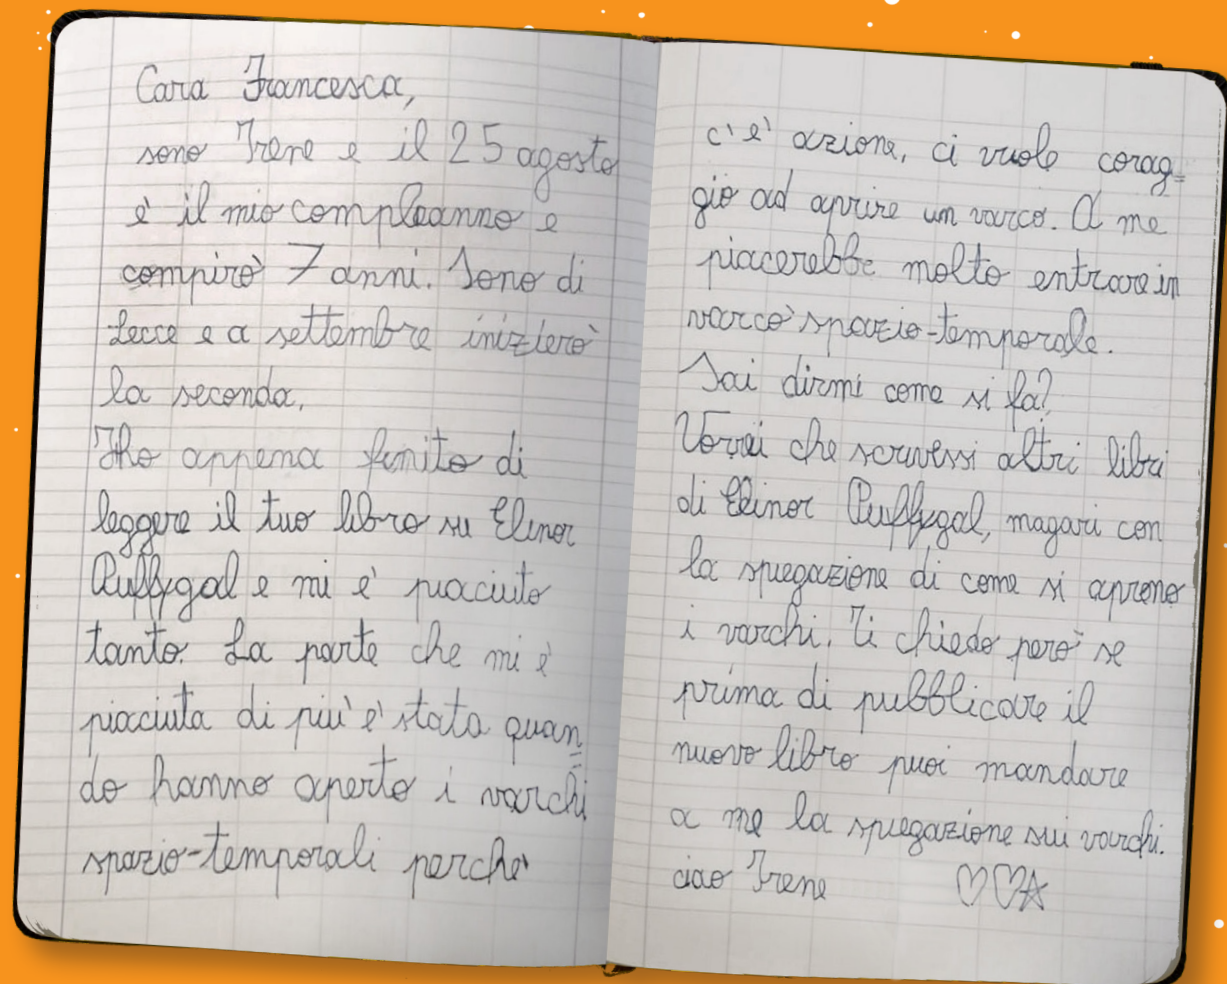 Cara Francesca,
sono Irene e il 25 agosto
è il mio compleanno e
compirò 7 anni. Sono di
Lecce e a settembre inizierò
la seconda.
Ho appena finito di
leggere il tuo libro su Elinor
Puffygal e mi è piaciuto
tanto. La parte che mi è
piaciuta di più è stata quan=
do hanno aperto i varchi
spazio-temporali perché
c'è azione, ci vuole corag=
gio ad aprire un varco. A me
piacerebbe molto entrare in
varco spazio-temporale.
Sai dirmi come si fa?
Vorrei che scrivessi altri libri
di Elinor Puffygal, magari con
la spiegazione di come si aprono
i varchi. Ti chiedo però se
prima di pubblicare il
nuovo libro puoi mandare
a me la spiegazione sui varchi.
ciao Irene ♡♡☆